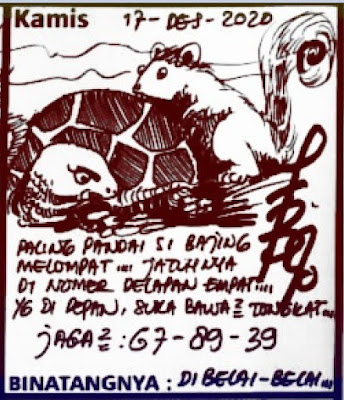 Kamis 17-DES-2020
PALING PANDAI SI BAJING
MELOMPAT.... JATUHNYA
DI NOMER DELAPAN EMPAT....
YG DI DEPAN, SUKA BAWA² TONGKAT...
JAGA² : 67-89-39
BINATANGNYA : DIBELAI-BELAI...